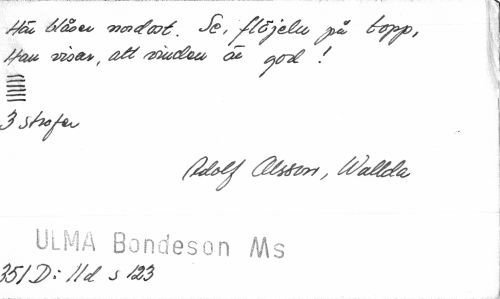 Här blåser nordost. Se, flöjeln på topp,
Han visar, att vinden är god!
3 strofer
Adolf Olsson, Wallda
ULMA Bondeson Ms
351 D: 11d s 123